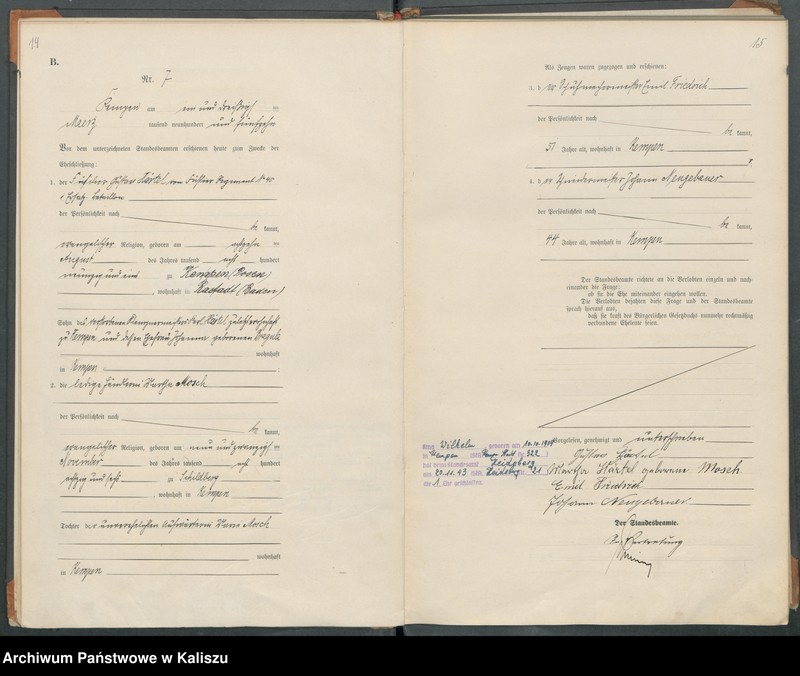 14
B.
Nr. 7
Kempen am ein und dreißig ten
Maerz tausend neunhundert und fünfzehn
Vor dem unterzeichneten Standesbeamten erschienen heute zum Zwecke der
Eheschließung:
1. der Füsilier Gustav Härtel vom Füsilier Regiment No 40
1 Ersatz Bataillon
der Persönlichkeit nach
be kannt,
evangelischer Religion, geboren am achtzehn ten
August des Jahres tausend acht hundert
neunzig und eins zu Kempen (Posen)
, wohnhaft in Rastadt (Baden)
Sohn des verstorbenen Klempnermeisters Karl Härtel zuletzt wohnhaft
zu Kempen und dessen Ehefrau Johanna geborenen
wohnhaft
in Kempen
2. die ledige Händlerin Martha Mosch
der Persönlichkeit nach
be kannt,
evangelischer Religion, geboren am neun und zwanzigsten
November des Jahres tausend acht hundert
achtzig und sechs zu Schildberg
, wohnhaft in Kempen
Tochter der unverehelichten Aufwärterin Mosch
wohnhaft
in Kempen
15
Als Zeugen waren zugezogen und erschienen:
3. der Schuhmachermeister Emil Friedrich
der Persönlichkeit nach
be kannt,
51 Jahre alt, wohnhaft in Kempen
4. der Schneidermeister Johann Neugebauer
der Persönlichkeit nach
be kannt,
44 Jahre alt, wohnhaft in Kempen
Der Standesbeamte richtete an die Verlobten einzeln und nach-
einander die Frage:
ob sie die Ehe miteinander eingehen wollen.
Die Verlobten bejahten diese Frage und der Standesbeamte
sprach hierauf aus,
daß sie kraft des Bürgerlichen Gesetzbuchs nunmehr rechtmäßig
verbundene Eheleute seien.
Vorgelesen, genehmigt und unterschrieben
Wilhelm geboren am 10.10.1909
in Kempen 322
hat beim Standesamt
am 20.11.43
die 1. Ehe geschlossen.
Gustav Härtel
Martha Härtel geborene Mosch
Emil Friedrich
Johann Neugebauer
Der Standesbeamte.
In Vertretung
Archiwum Państwowe w Kaliszu